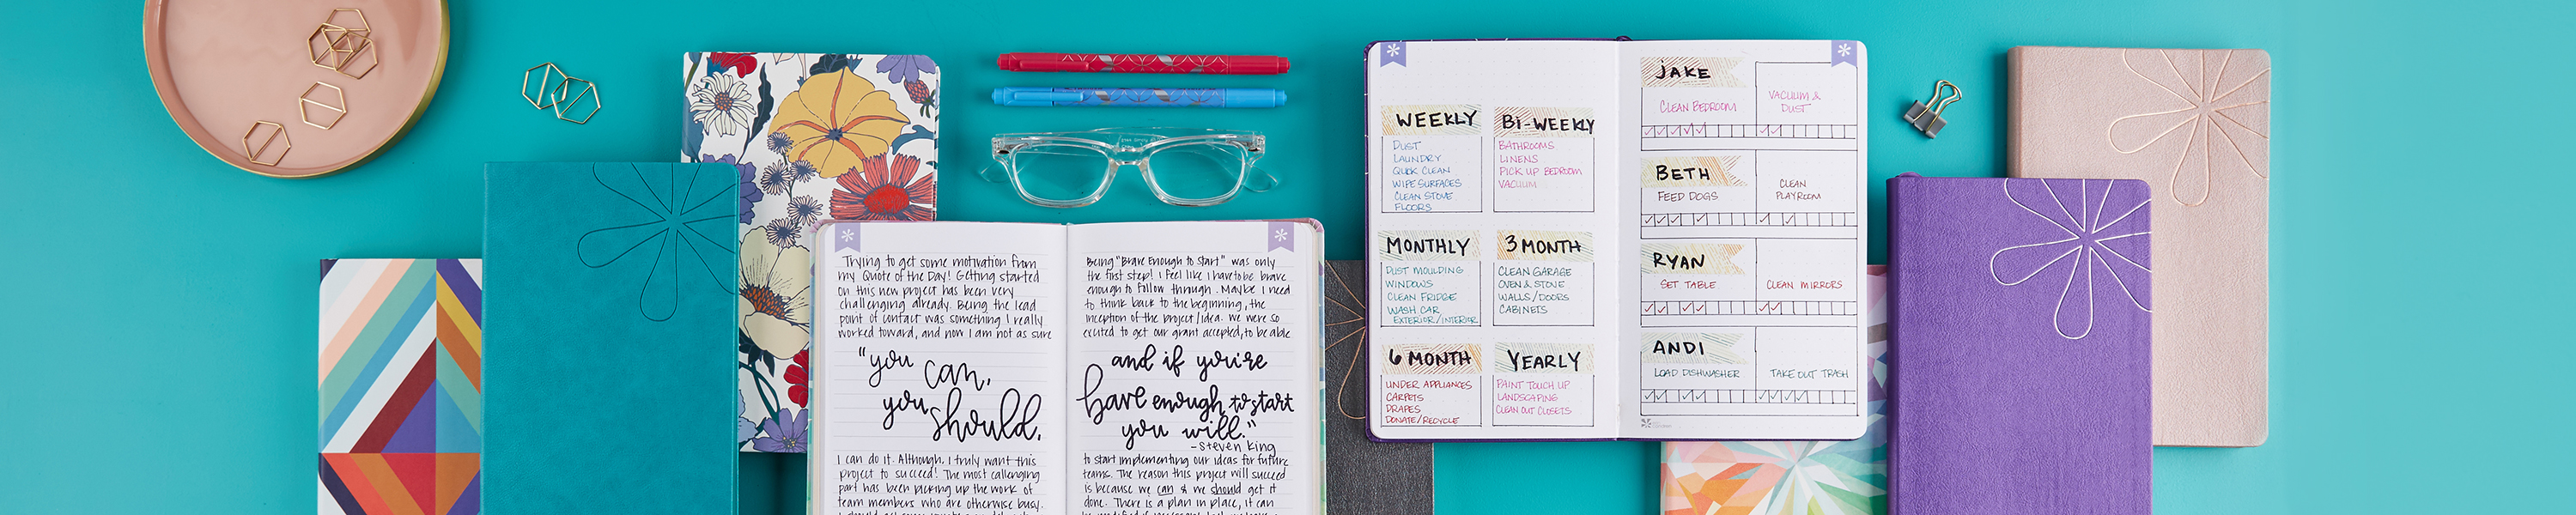 Trying to get some motivation from
my Quote of the Day! Getting started
on this new project has been very
challenging already. Being the lead
point of contact was something I really
worked toward, and now I am not as sure
"you
can,
you
should,
I can do it. Although, I truly want this
project to succeed! The most callenging
part has been picking up the work of
team members who are otherwise busy.
Being "Brave Enough to Start" was only
the first step! I feel like I have to be brave
enough to follow through. Maybe I need
to think back to the beginning, the
inception of the project/idea. We were so
excited to get our grant accepted, to be able
and if you're
brave enough to start
you will."
-Steven King
to start implementing our ideas for future
teams. The reason this project will succeed
is because we can & we should get it
done. There is a plan in place, it can
WEEKLY
DUST
LAUNDRY
QUICK CLEAN
WIPE SURFACES
CLEAN STOVE
FLOORS
Bi-WEEKLY
BATHROOMS
LINENS
PICK UP BEDROOM
VACUUM
MONTHLY
DUST MOULDING
WINDOWS
CLEAN FRIDGE
WASH CAR
EXTERIOR/INTERIOR
3 MONTH
CLEAN GARAGE
OVEN & STOVE
WALLS/DOORS
CABINETS
6 MONTH
UNDER APPLIANCES
CARPETS
DRAPES
DONATE/RECYCLE
YEARLY
PAINT TOUCH UP
LANDSCAPING
CLEAN OUT CLOSETS
JAKE
CLEAN BEDROOM
VACUUM &
DUST
BETH
FEED DOGS
CLEAN
PLAYROOM
RYAN
SET TABLE
CLEAN MIRRORS
ANDI
LOAD DISHWASHER
TAKE OUT TRASH